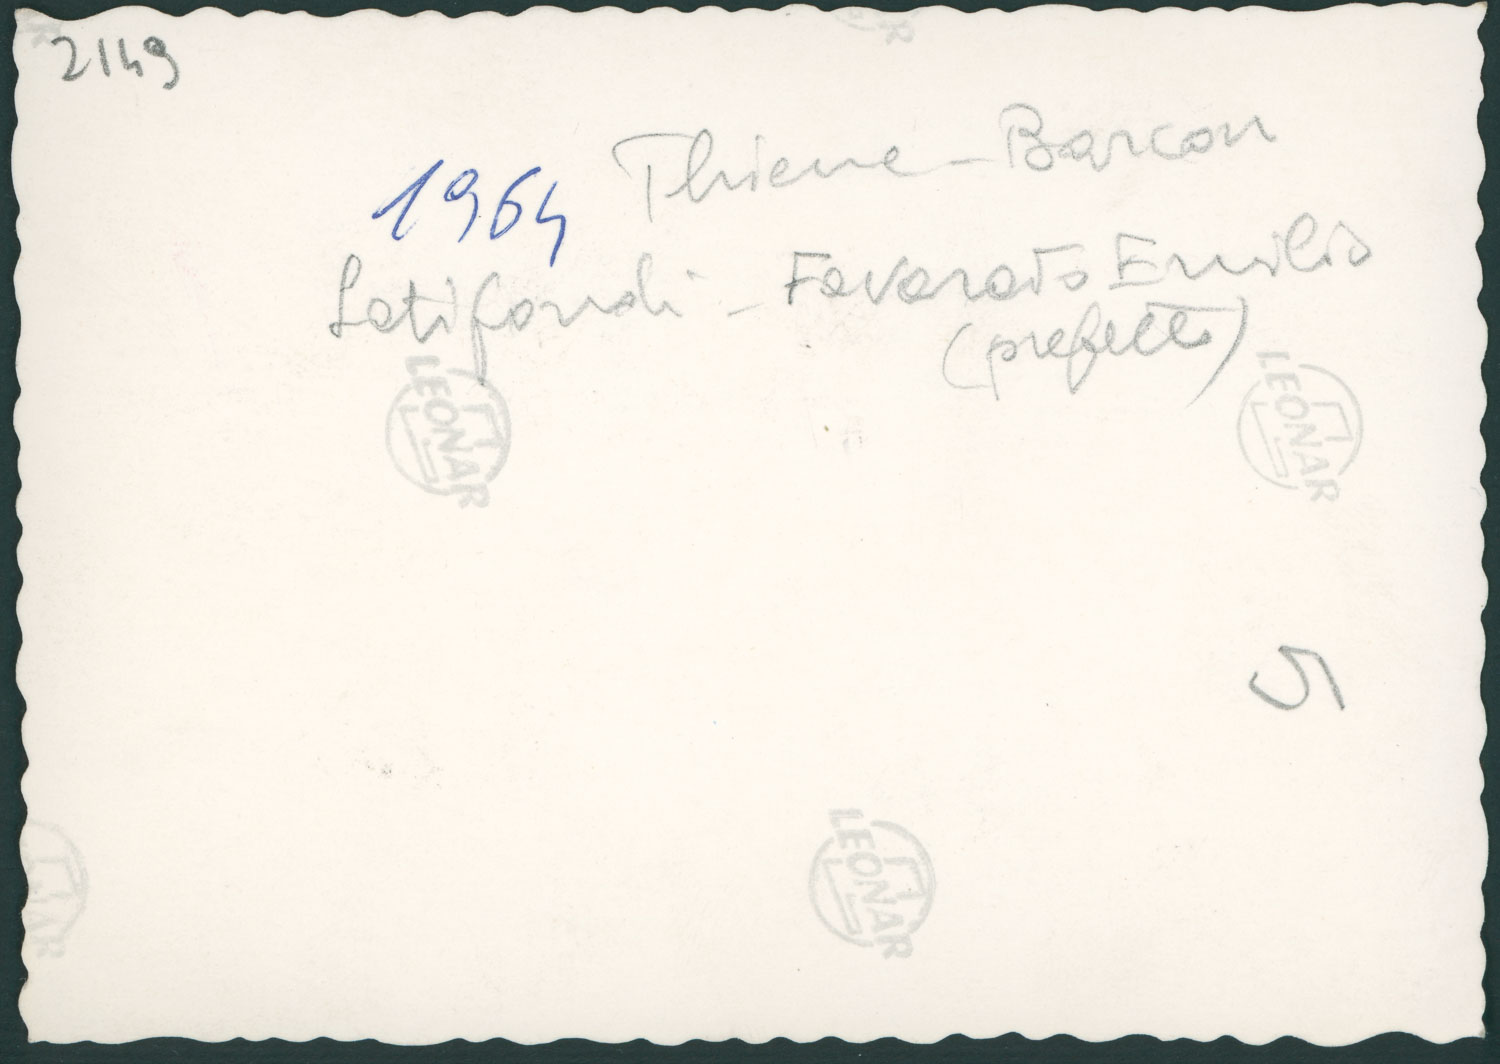 2149
Thiene - Barcon
1964
Latifondi - Favarato Emilio
(prefetto)
LEONAR
LEONAR
5
LEONAR